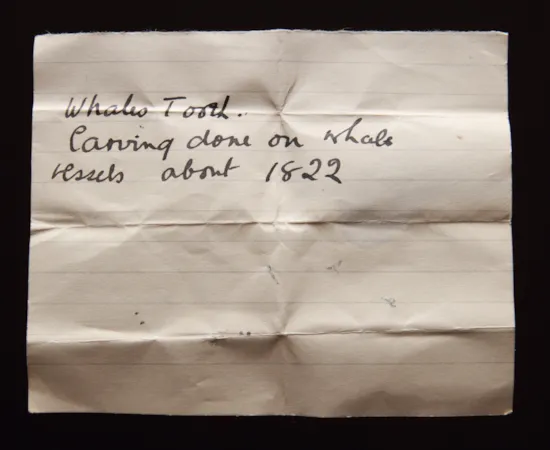 Whales Tooth.
Carving done on whale
vessels about 1822